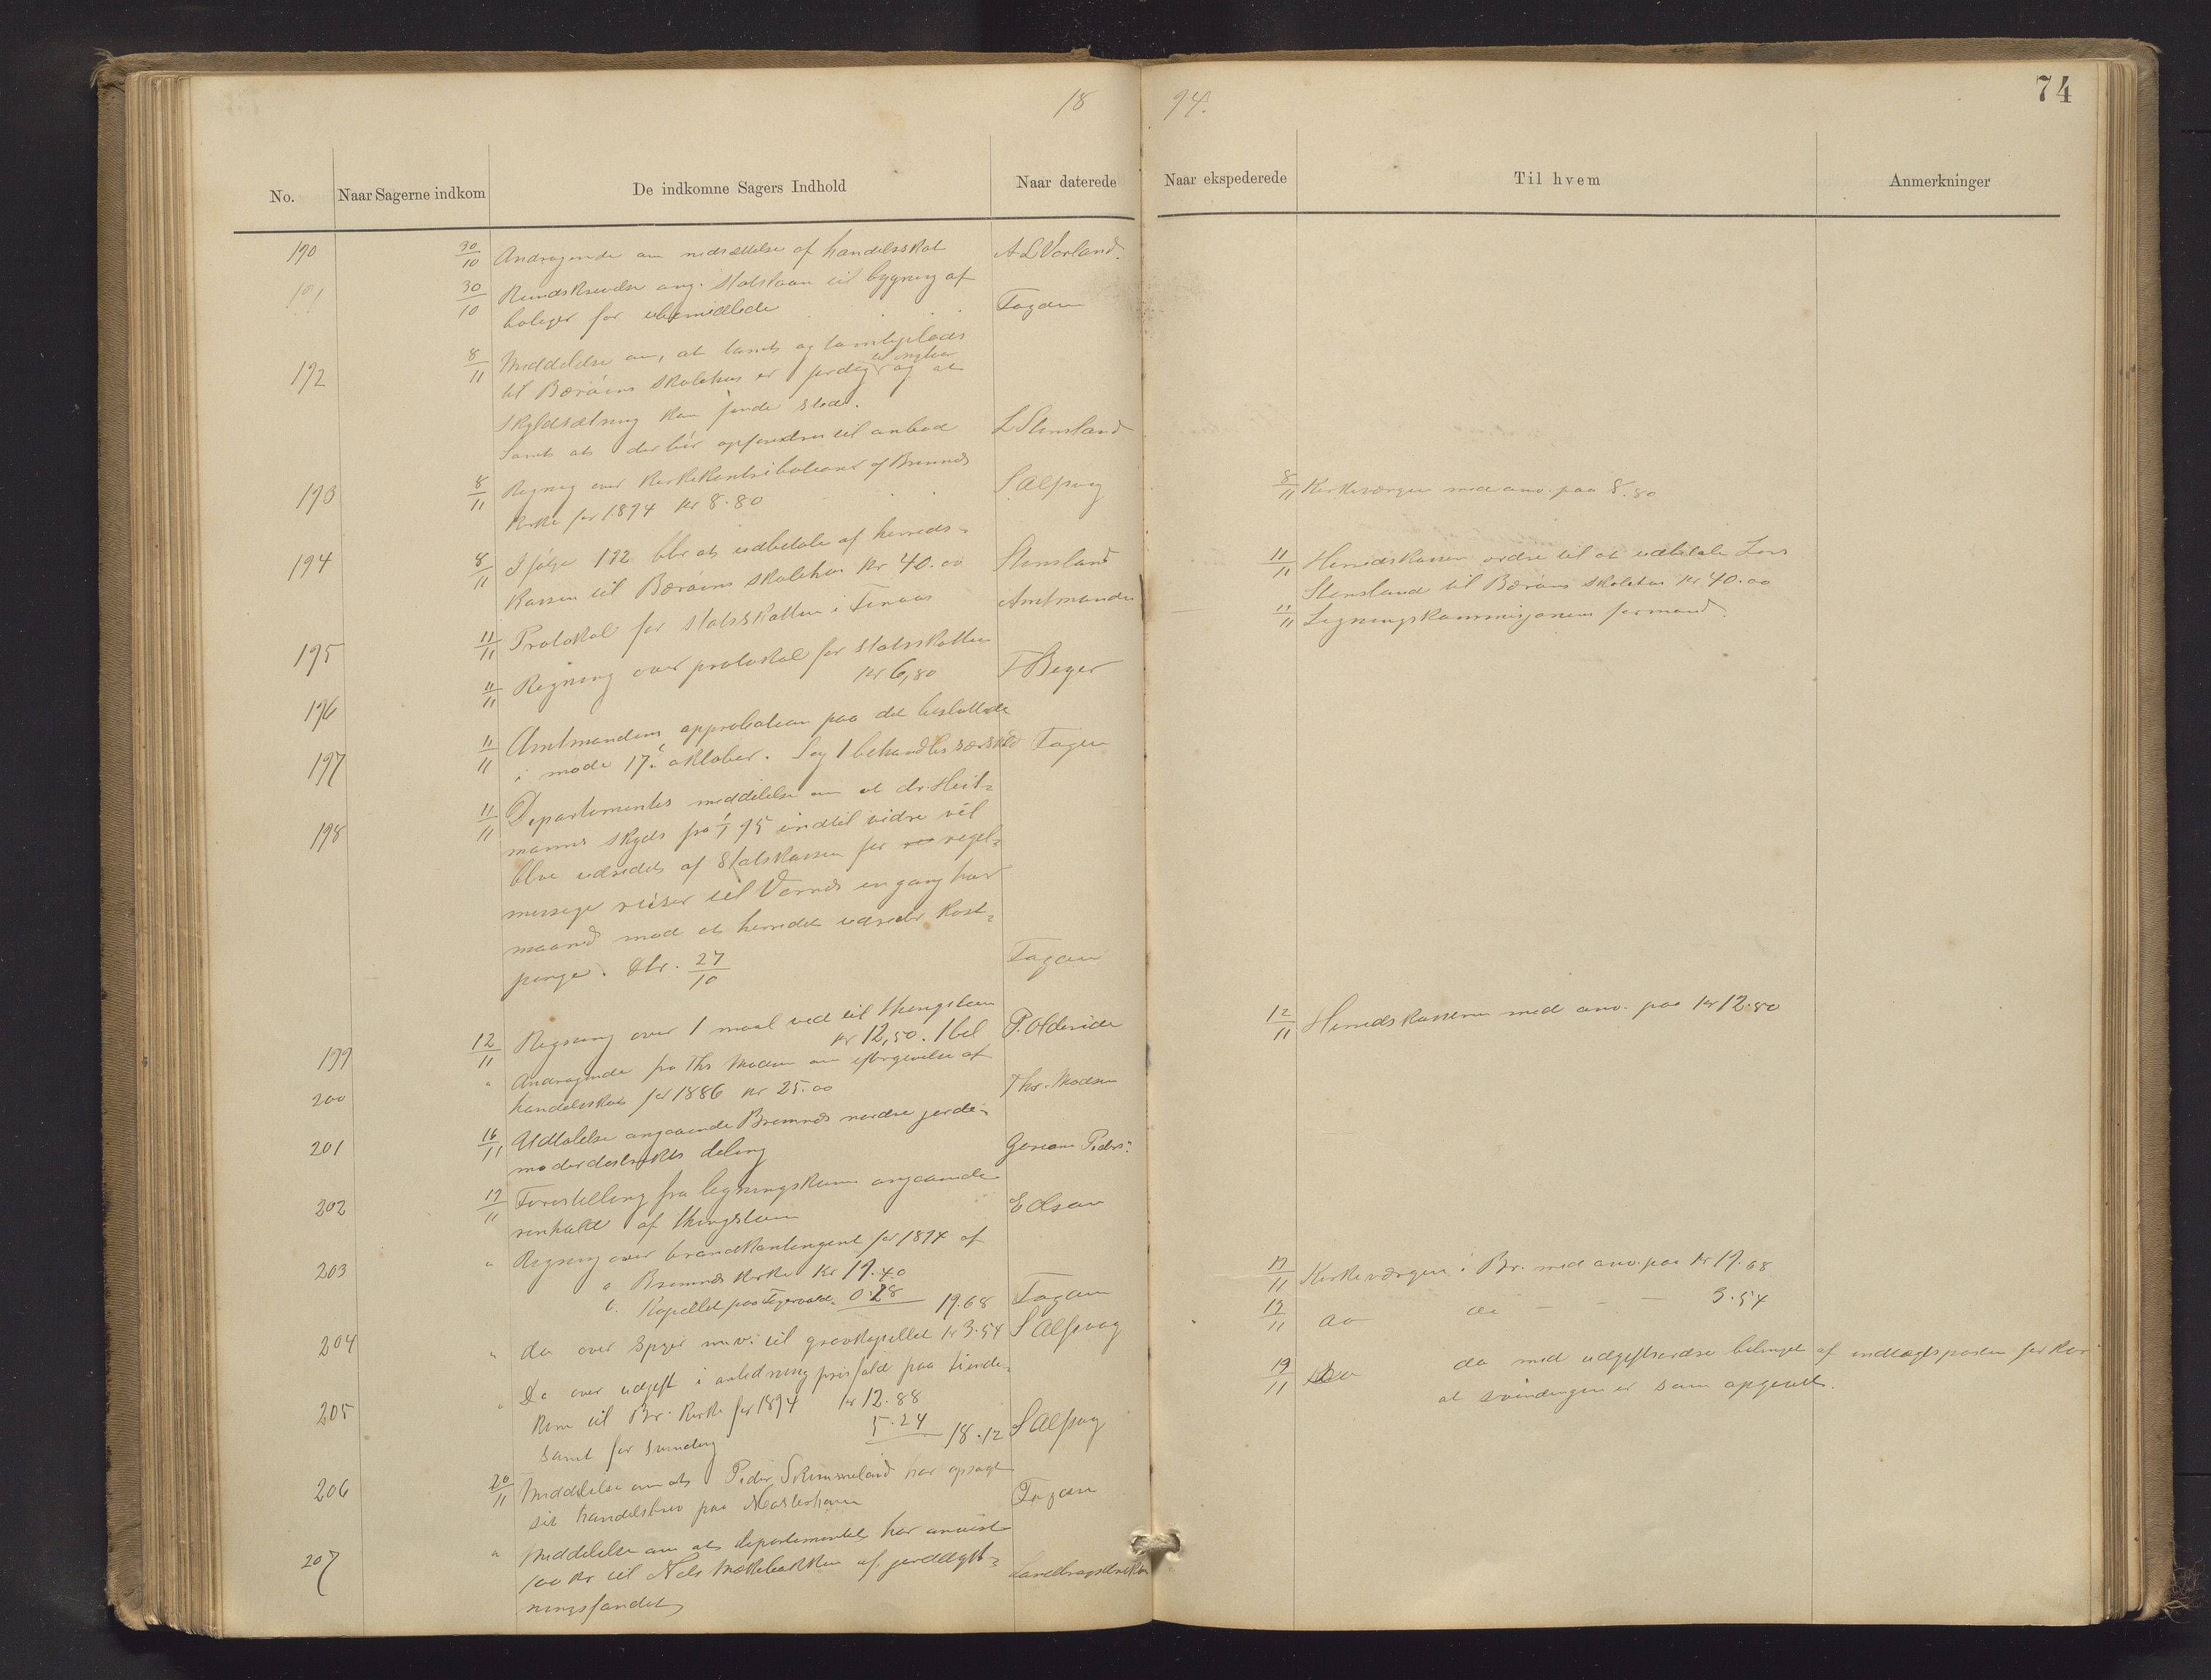 18 94.
74
No. Naar Sagerne indkom De indkomne Sagers Indhold Naar daterede Naar ekspederede Til hvem Anmerkninger
190 30/10 Andragende om nedsættelse af handelsskat A L Vorland.
191 30/10 Rundskrivelse ang. Statslaan til bygning af
boliger for ubemidlede Fogden
192 8/11 Meddelelse om, at tomt og
til Børøens Skolehus er færdig og at
Skyldsætning kan finde sted.
Samt at der bør opfordres til anbud L Stensland
193 8/11 Regning over Kirkekontributioner af Bremnes
Kirke for 1894 Kr 8.80 S Alfsvag
8/11 Kirkeværgen med anv. paa 8.80
194 8/11 Ifølge 192 blir at udbetale af herreds-
kassen til Børøens skolehus Kr 40.00 Stensland
11/11 Herredskassen ordre til at udbetale Lars
Stensland til Børøens skolehus Kr 40.00
195 11/11 Protokol for Statsskatten i Finaas Amtmanden
11/11 Ligningskommisjonens formand.
196 11/11 Regning over protokol for Statsskatten
Kr 6,80 F Beyer
197 11/11 Amtmandens approbation paa det besluttede
i møde 17. oktober. Sag 1 behandles særskilt Fogden
198 11/11 Departementets meddelelse om at dr. Heit-
manns skyds fra 1/1 95 indtil vidre vil
blive udredet af Statskassen for regel-
messige reiser til hver en gang hver
maaned mod at herredet udreder kost-
penge. Skr. 27/10 Fogden
199 12/11 Regning over 1 maal ved til thingstuen
Kr 12,50. 1 bil P. Oldereide
12/11 Herredskasseren med anv. paa Kr 12.50
200 " Andragende fra Ths Madsen om eftergivelse af
handelsskat for 1886 Kr 25.00 Ths. Madsen
201 16/11 Udtalelse angaaende Bremnes nordre jorde-
moderdistrikts deling Gjeriane Peders.
202 17/11 Forestilling fra ligningskom. angaaende
renhold af thingstuen E Olsen
203 " Regning over brandkontingent for 1894 af
a Bremnes Kirke Kr 19.40
b. Kapellet paa 0.28 19.68 Fogden
17/11 Kirkeværgen i Br. med anv. paa Kr 19.68
204 " do over Spiger m.v. til gravkapellet Kr 3.54 S Alfsvaag
17/11 do do - - - 3.54
205 " Do over udgift i anledning prisfald paa tiende-
korn til Br. Kirke for 1894 Kr 12.88
samt for svinding 5.24 18.12 S Alfsvag
19/11 do do med udgiftsordre betinget af indtægtsposten for Korn
at svindingen er som opgivet.
206 20/11 Meddelelse om at Peder Skimmeland har opsagt
sit handelsbrev paa Mosterhavn Fogden
207 " Meddelelse om at departementet har anvist
100 Kr til Nels af jorddyrk-
ningsfondet Landbrugsdirektør